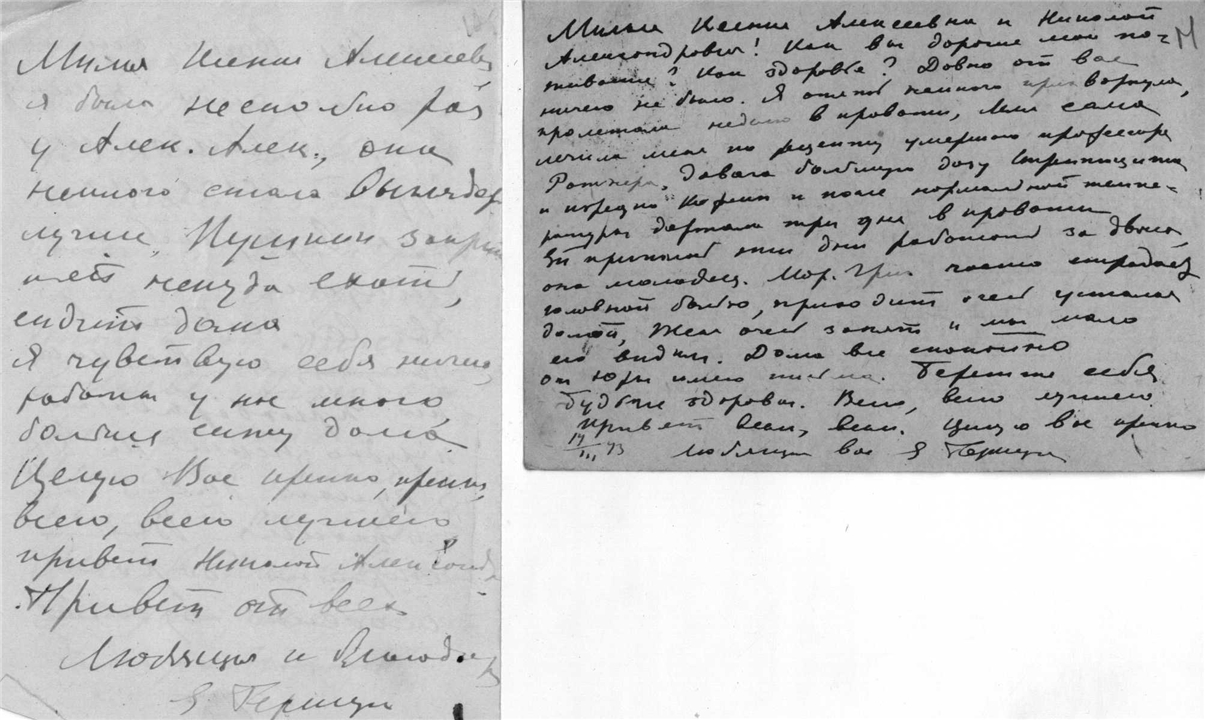 Милая Ксения Алексеевна
я была несколько раз
у Алек. Алек., она
немного стала выгляде
лучше, Пушкин закры
некуда ехать,
сидит дома
я чувствую себя ничего,
работы у нас много,
больше сижу дома
Целую Вас крепко, крепко,
всего, всего лучшего
привет Николай Александ
Привет от всех
Любящая и
Е Герцен
Милые Ксения Алексеевна и Николай
Александрович! Как вы дорогие мои по-
живаете? Как здоровье? Давно от вас
ничего не было. Я опять немного прихворнула,
пролежала недолго в кровати, сама
лечила меня по рецепту умершего профессора
давала большую дозу Стрептоцита
и изредка Кофеин и после нормальной темпе-
ратуры держала три дня в кровати
эти дни работать за двоих,
она молодец. Мар. Гри часто страдает
головной болью, приходит очень усталая
домой, Женя очень занят и мы мало
его видим. Дома все спокойно
от Юры имею письма. Берегите себя
Будьте здоровы. Всего, всего лучшего
привет всем, всем. Целую вас крепко
14/III 43 Любящая вас Е Герцен